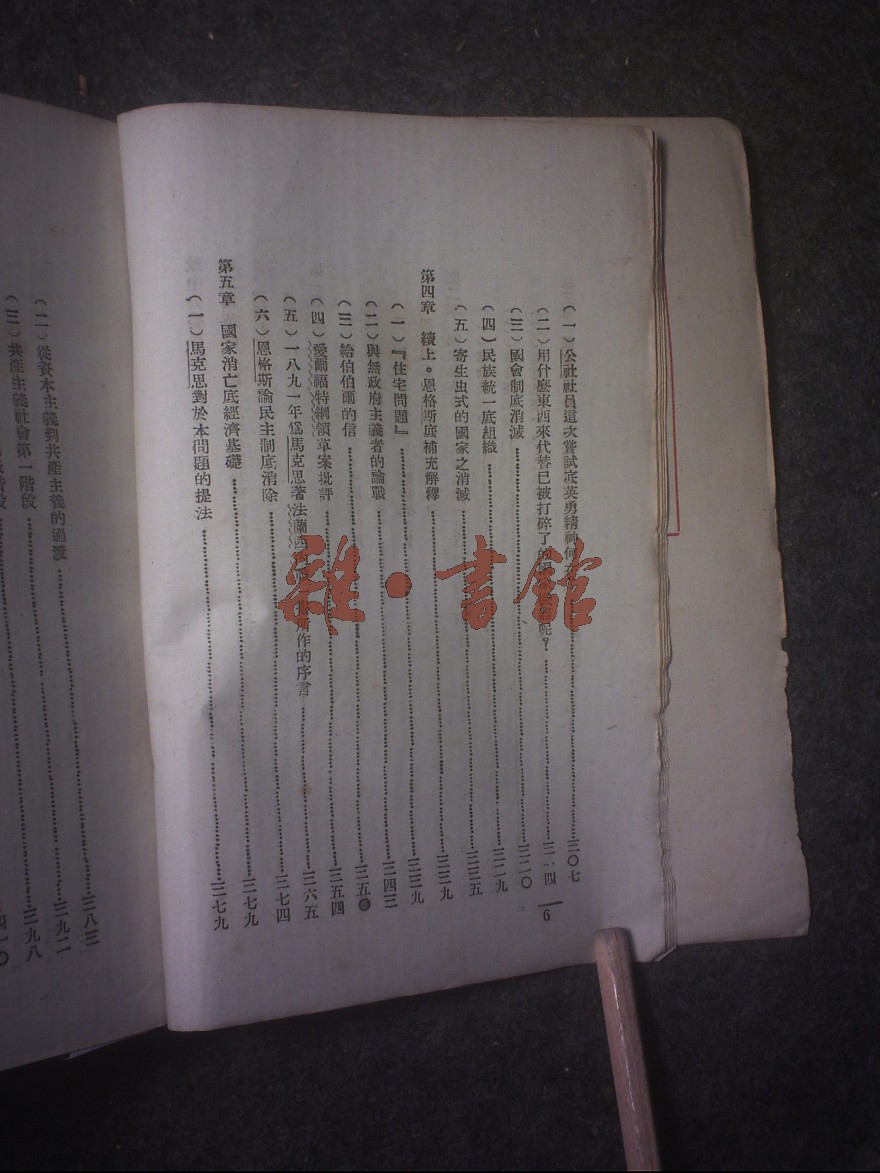 (一)公社社員這次嘗試底英勇精神何在 三〇七
(二)用什麼東西來代替已被打碎了的 呢?
(三)國會制底消滅 三二〇
(四)民族統一底組織
(五)寄生虫式的國家之消滅
第四章 續上。恩格斯底補充解釋
(一)『住宅問題』
(二)與無政府主義者的論戰 三四三
(三)給伯伯爾的信
(四)愛爾福特綱領草案批評 三五四
(五)一八九一年爲馬克思著法蘭西 所作的序言 三六五
(六)恩格斯論民主制底消除 三七四
第五章 國家消亡底經濟基礎 三七九
(一)馬克思對於本問題的提法 三七九
6
(二)從資本主義到共產主義的過渡 三八三
(三)共產主義社會第一階段 三九二
階段 三九八
四一〇
雜·書館